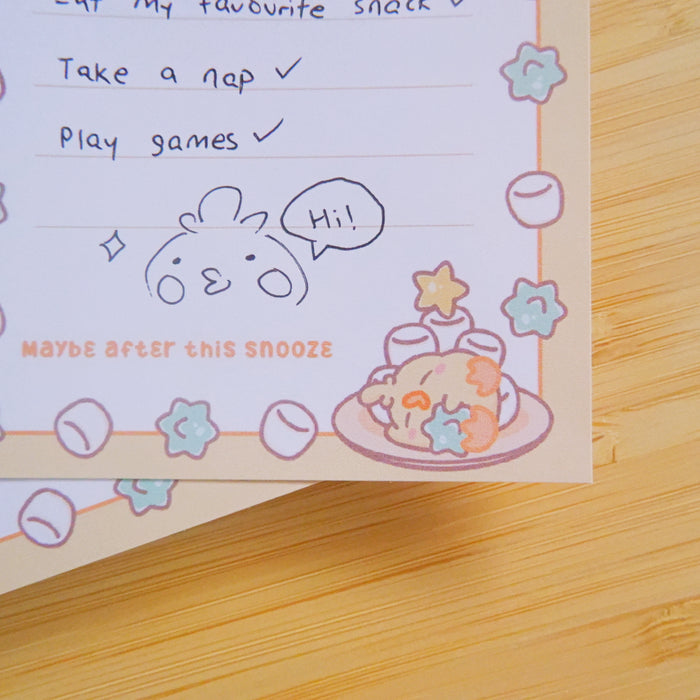 Eat my favourite snack ✓
Take a nap ✓
Play games ✓
Hi!
Maybe after this snooze